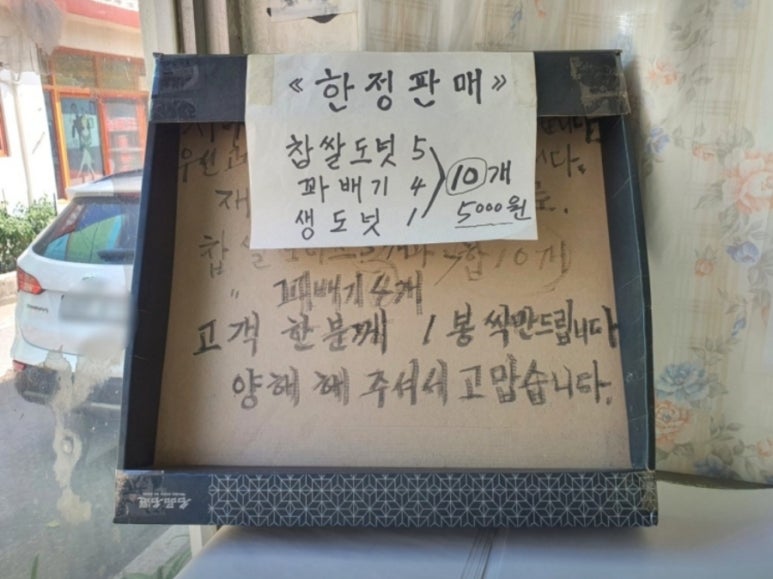 《한정판매》
찹쌀도넛 5
꽈배기 4
생도넛 1
10개
5000원
우선
재
찹쌀 합 10개
" 꽈배기 4개
고객 한분께 1봉 씩만드립니다
양해해 주셔서 고맙습니다.